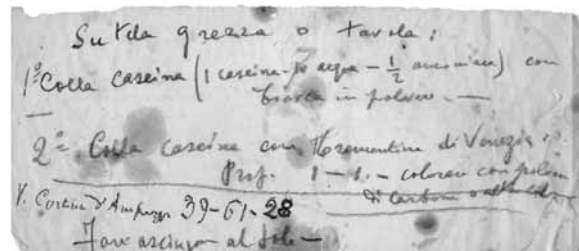 Su tela grezza o tavola:
1º Colla caseina (1 caseina - acqua - 1/2 ammoniaca) con
biacca in polvere. —
2º Colla caseina con Trementina di Venezia:
Prop. 1 - 1. - colorar con polvere
di carbone
V. Cortina d'Ampezzo 39-61-28
Fare asciugar al sole —